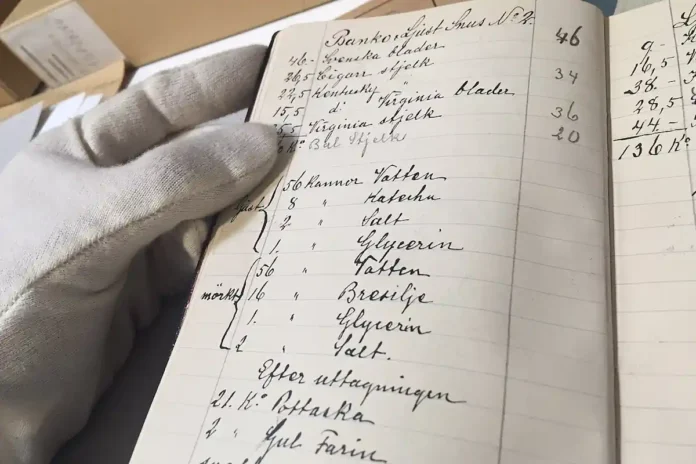 Banko Ljust Snus No 2.
46 - Svenska blader 46
26,5 Cigarr stjelk
22,5 Kentucky " 34
15,5 d° Virginia blader
5,5 Virginia stjelk 36
K° Bal Stjelk 20
ljust
1 56 Kannor Vatten
8 " Katechu
2 " Salt
1. " Glycerin
mörkt
56 " Vatten
16 " Bresilje
1. " Glycerin
2 " Salt.
Efter uttagningen
21. K° Pottaska
2 " Gul Farin
9 -
16,5
38. -
28,5
44 -
136 K°